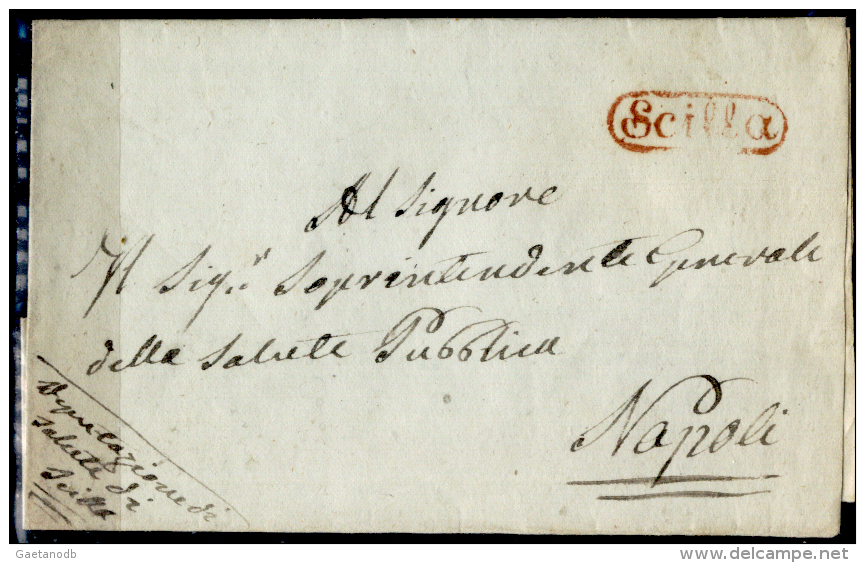 Scilla
Al Signore
Il Sig.r Soprintendente Generale
della Salute Pubblica
Napoli
Deputazione di
Salute di
Scilla
Gaetanodb
www.delcampe.net